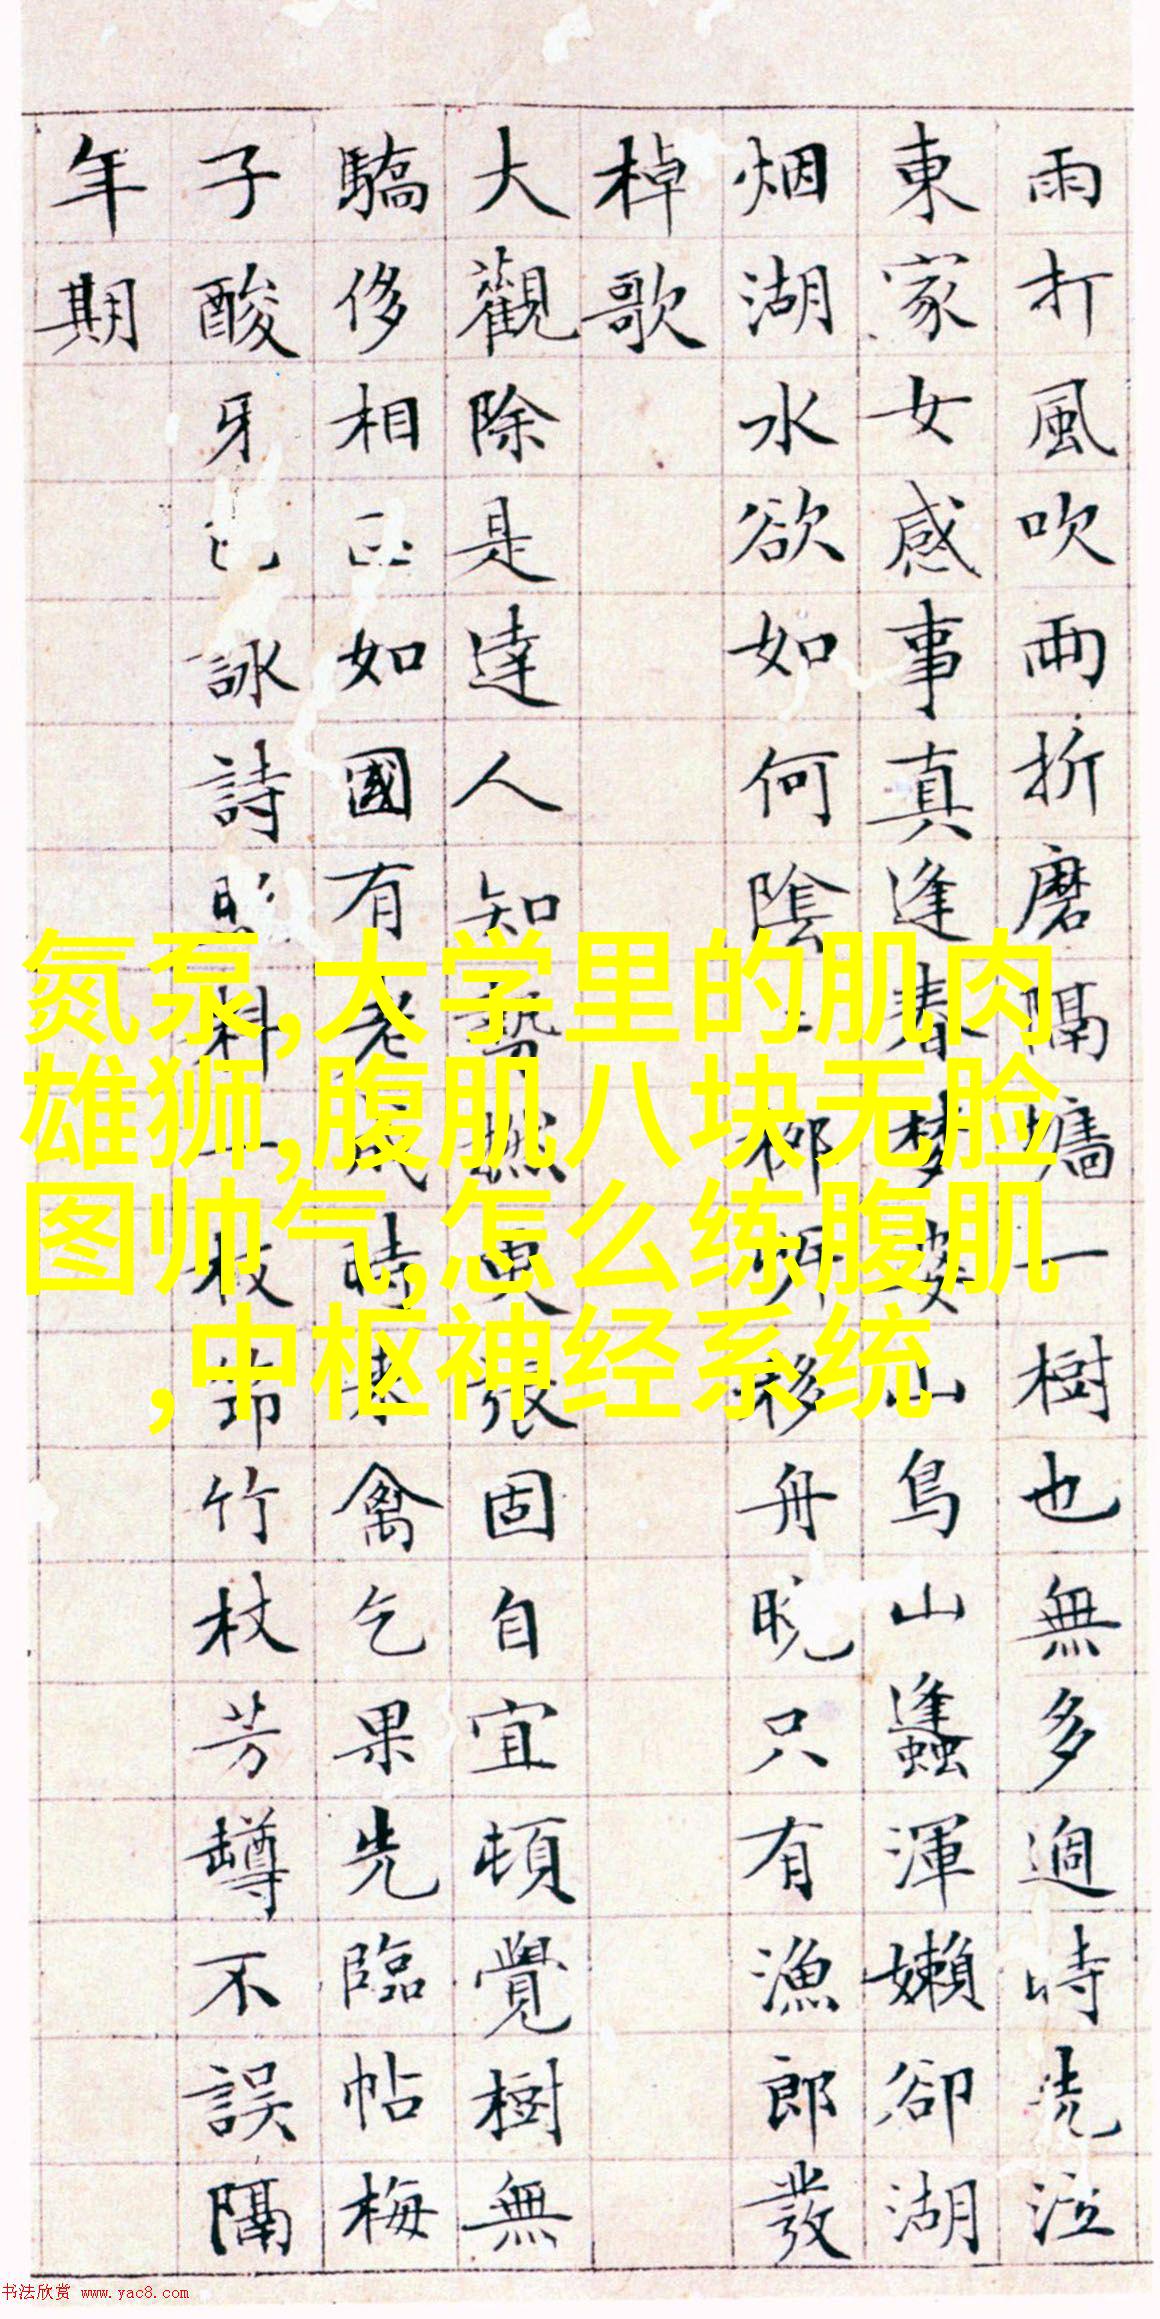 雨打風吹雨折磨隔墻一樹也無多過時泣
東家女感事真逢春夢婆山鳥山蠭渾嬾卻湖
烟湖水欲如何陰柳移舟晚只有漁郎發
棹歌
大觀除是達人知勢更張固自宜頓覺樹無
驕侈相如國有老成時禽乞果先臨帖梅
子酸牙詠詩料一枝竹杖芳罇不誤隔
年期
氮泵,大学里的肌肉
雄狮,腹肌八块无脸
图帅气,怎么练腹肌
,中枢神经系统
书法欣赏 www.yac8.com